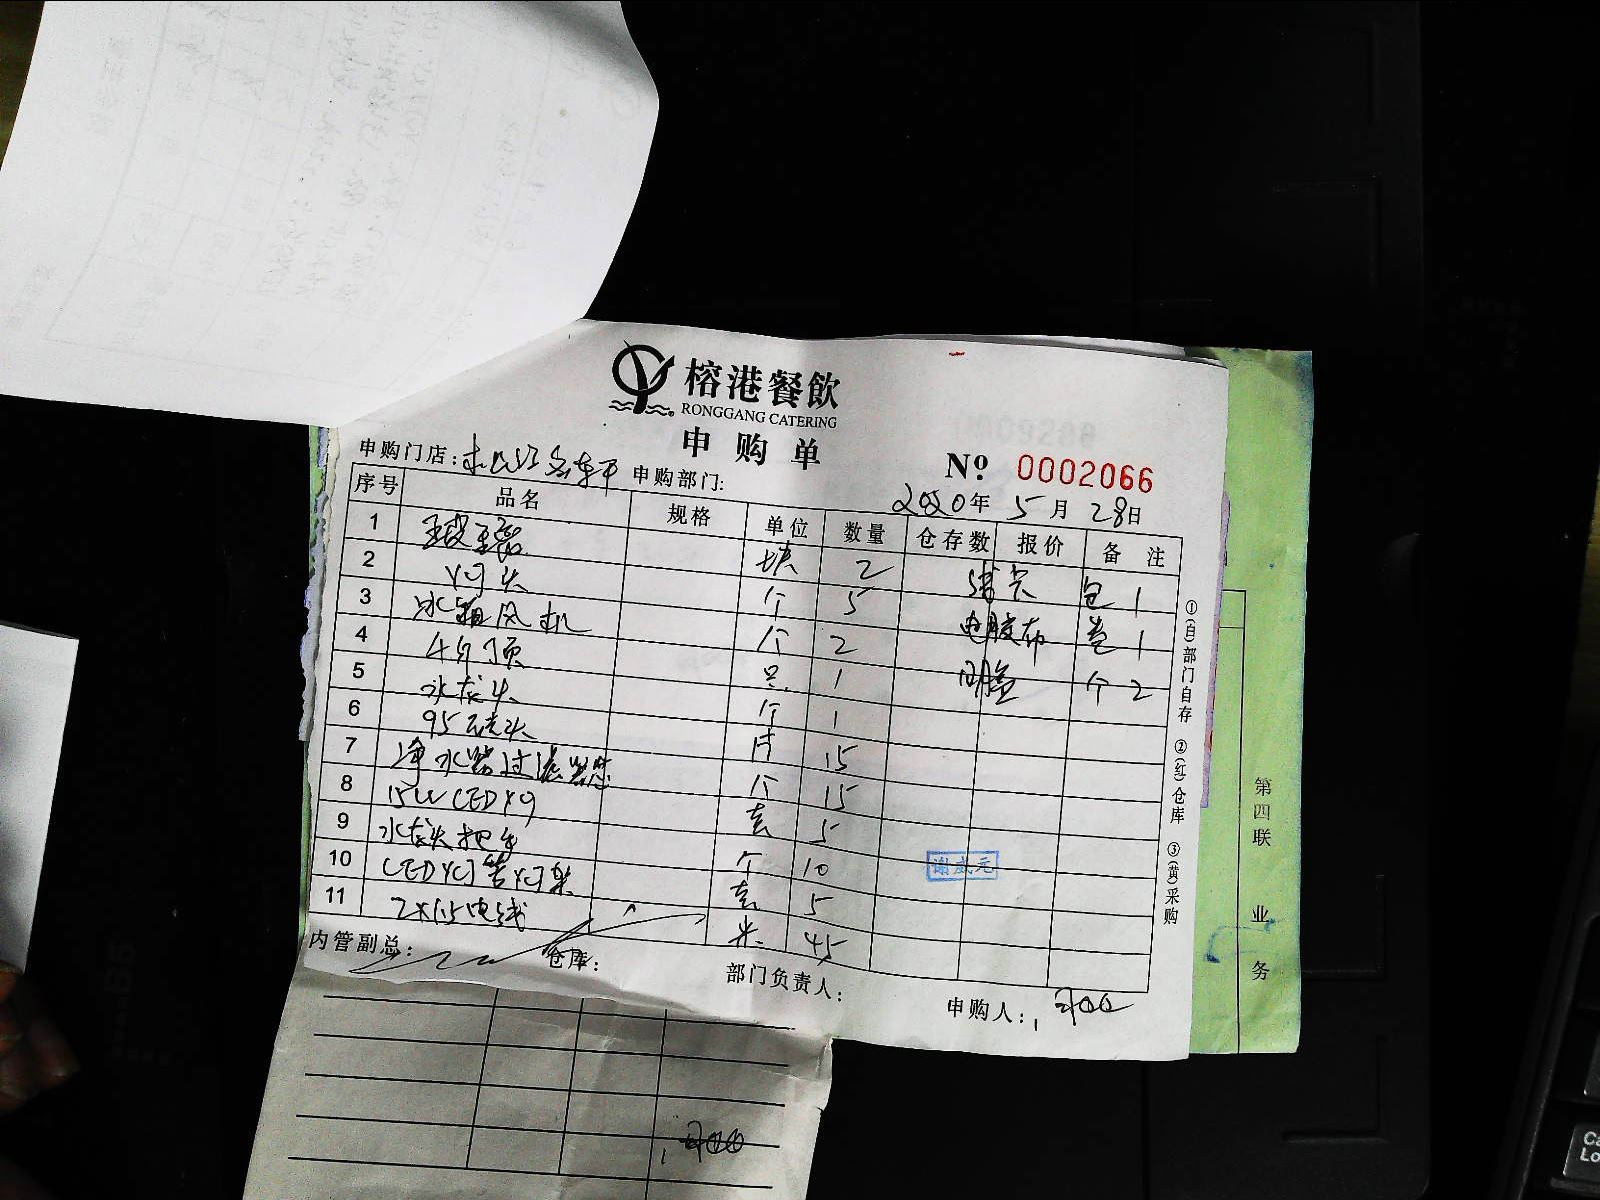 榕港餐飲
RONGGANG CATERING
申购单
№ 0002066
申购门店: 申购部门:
2020年 5月 28日
序号 品名 规格 单位 数量 仓存数 报价 备注
1 玻璃 块 2 包 1
2 灯头 个 5 电胶布 卷 1
3 冰箱风机 个 2 个 2
4 只 1
5 水龙头 个 1
6 片 15
7 净水器过滤器芯 个 15
8 15W LED灯 套 5
9 水龙头把手 个 10
10 LED灯管灯架 套 5
11 2×1.5电线 米 45
内管副总: 仓库: 部门负责人: 申购人:
谢成元
①(白)部门自存 ②(红)仓库 ③(黄)采购
第四联 业务
0009288